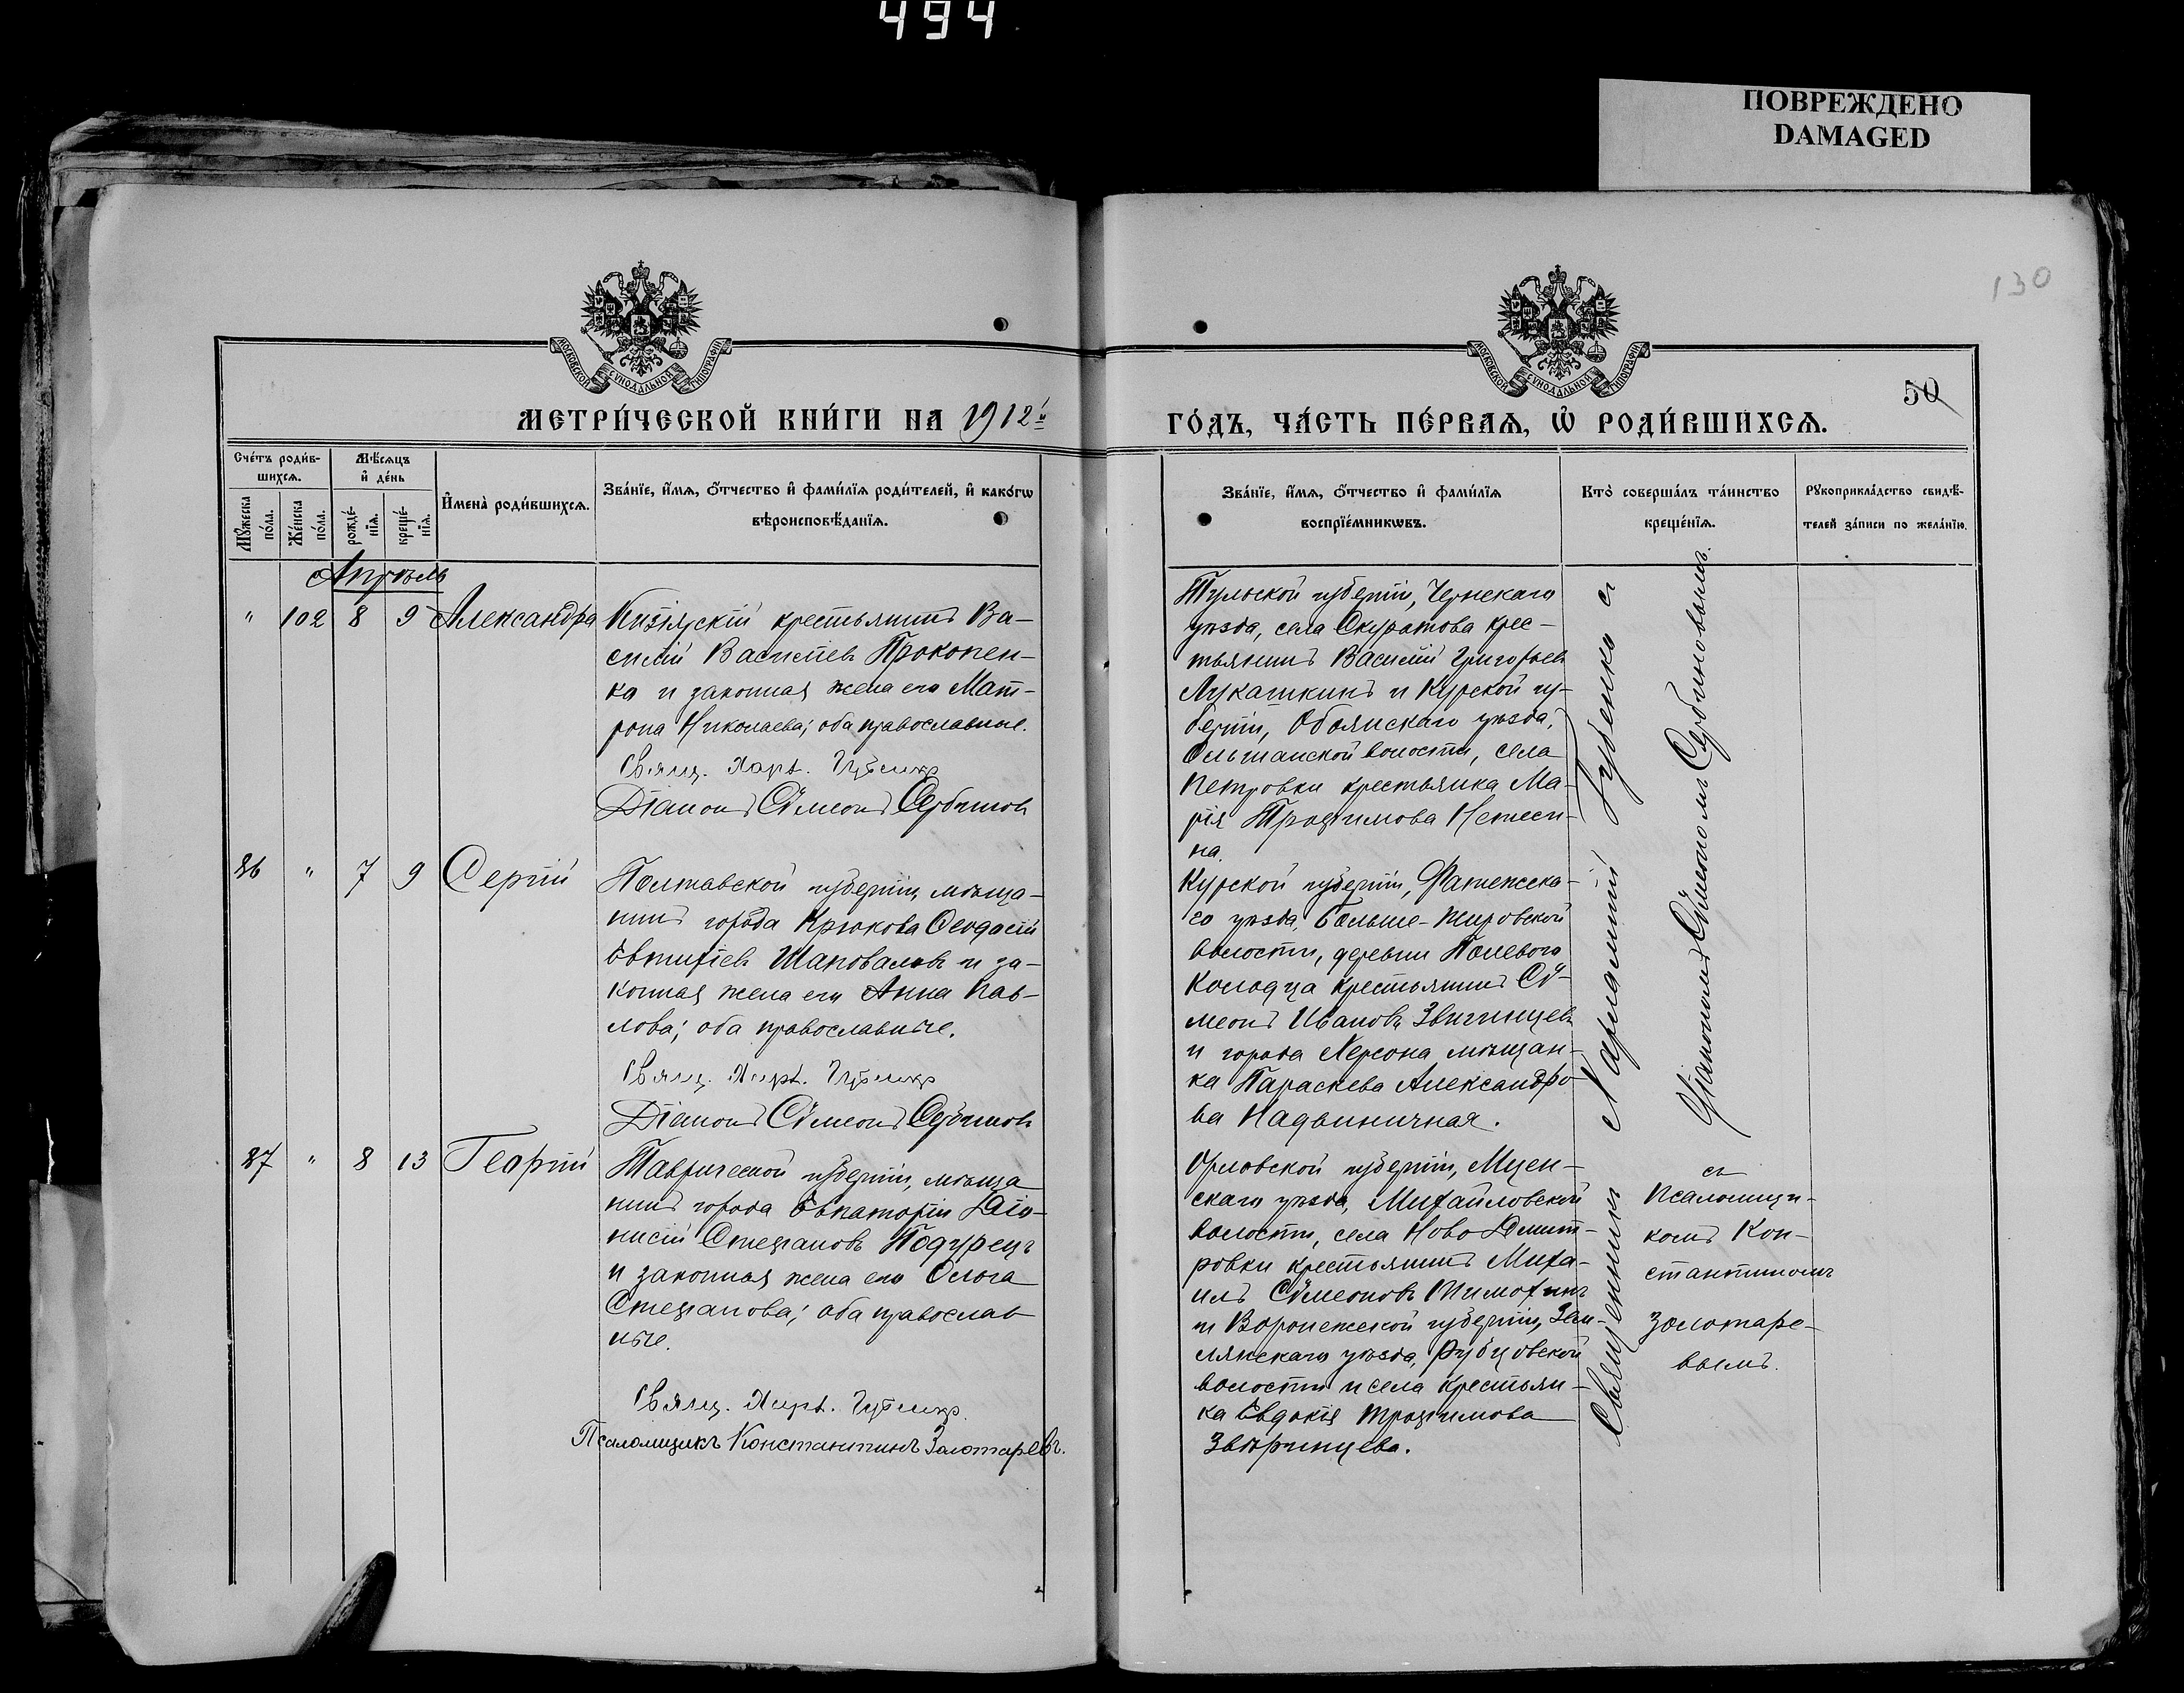 494
ПОВРЕЖДЕНО
DAMAGED
130
МОСКОВСКОЙ СѴНОДАЛЬНОЙ ТИПОГРАФІИ
МОСКОВСКОЙ СѴНОДАЛЬНОЙ ТИПОГРАФІИ
50
МЕТРИ́ЧЕСКОЙ КНИ́ГИ НА 1912й
ГО́ДЪ, ЧА́СТЬ ПЕ́РВАѦ, Ѡ҆ РОДИ́ВШИХСѦ.
Сче́тъ роди́в-
шихсѧ.
Мѣ́сѧцъ
и҆ де́нь
Мꙋ́жеска
по́ла.
Же́нска
по́ла.
рожде́-
нїѧ.
креще́-
нїѧ.
И҆мена̀ роди́вшихсѧ.
Зва́нїе, и҆́мѧ, ѻ҆́тчество и҆ фами́лїѧ роди́телей, и҆ како́гѡ
вѣроисповѣ́данїѧ.
Зва́нїе, и҆́мѧ, ѻ҆́тчество и҆ фами́лїѧ
воспрїе́мникѡвъ.
Кто̀ соверша́лъ та́инство
креще́нїѧ.
Рꙋкоприкла́дство свидѣ́-
телей за́писи по жела́нїю.
Апрѣль
" 102 8 9 Александра
Кизіярскій крестьянинъ Ва-
силій Васильевъ Прокопен-
ка и законная жена его Мат-
рона Николаева; оба православные.
Свящ. Харл. Губенко
Діаконъ Сѵмеонъ Сербиновъ
Тульской губерніи, Чернскаго
уѣзда, села Скуратова крес-
тьянинъ Василій Григорьевъ
Лукашкинъ и Курской гу-
берніи, Обоянскаго уѣзда,
Ольшанской волости, села
Петровки крестьянка Ма-
рія Трофимова
на.
86 " 7 9 Сергій
Полтавской губерніи, мѣща-
нинъ города Крюкова Ѳеодосій
Евтихіевъ Шаповаловъ и за-
конная жена его Анна Пав-
лова; оба православные.
Свящ. Харл. Губенко
Діаконъ Сѵмеонъ Сербиновъ
Курской губерніи, Фатежска-
го уѣзда, Больше-Жировской
волости, деревни Полевого
Колодца крестьянинъ Сѵ-
меонъ Ивановъ Звягинцевъ
и города Херсона мѣщан-
ка Параскева Александро-
ва Надвиничная.
87 " 8 13 Георгій
Таврической губерніи, мѣща
нинъ города Евпаторіи Діо-
нисій Стефановъ Подурецъ
и законная жена его Ольга
Стефанова; оба православ
ные.
Свящ. Харл. Губенко
Псаломщикъ Константинъ Золотаревъ.
Орловской губерніи, Мцен-
скаго уѣзда, Михайловской
волости, села Ново Дмит-
ровки крестьянинъ Миха-
илъ Сѵмеоновъ Тимохинъ
и Воронежской губерніи, Зем-
лянскаго уѣзда, Рубцовской
волости и села крестьян-
ка Евдокія Трофимова
Звѣринцева.
Священникъ Харлампій Губенко съ
Діакономъ Сѵмеономъ Сербиновымъ.
съ
Псаломщи-
комъ Кон-
стантиномъ
Золотаре-
вымъ.